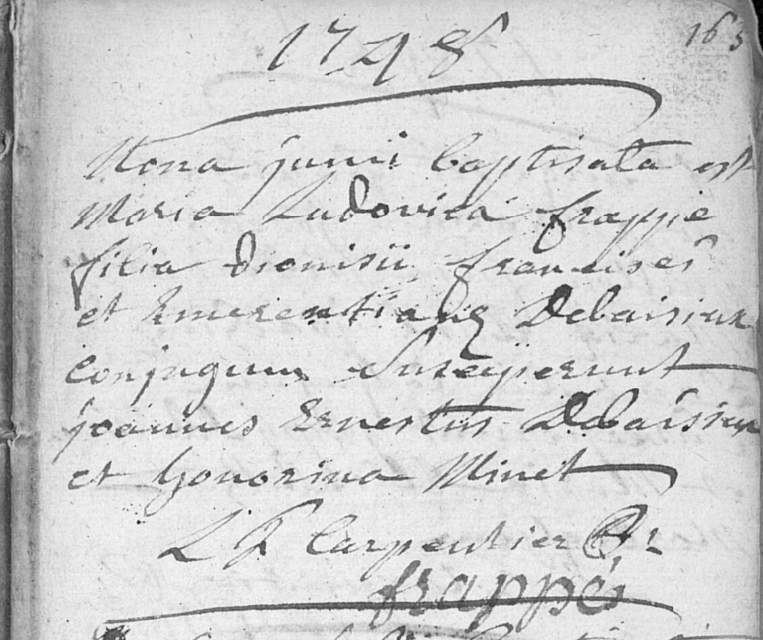 1748
163
Nona junii baptisata est
Maria Ludovica frappie
filia dionisii francisci
et Emerentianæ Debaisieux
conjugum Susceperunt
joannes Ernestus Debaisieux
et honorina Minet
L F Carpentier
frappés